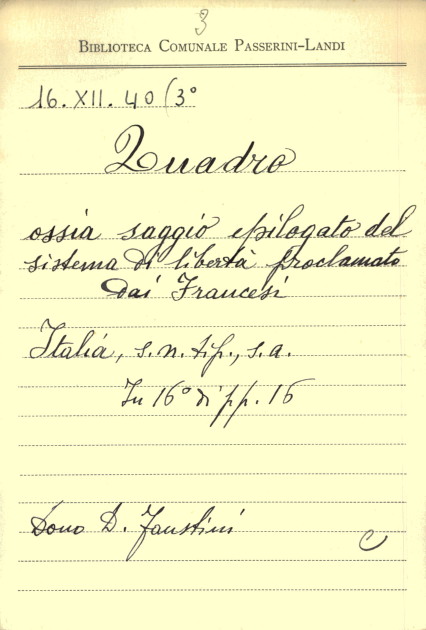 3
BIBLIOTECA COMUNALE PASSERINI-LANDI
16. XII. 40 (3°
Quadro
ossia saggio epilogato del
sistema di libertà proclamato
dai Francesi
Italia, s. n. tip., s. a.
In 16° di pp. 16
Dono D. Faustini
C